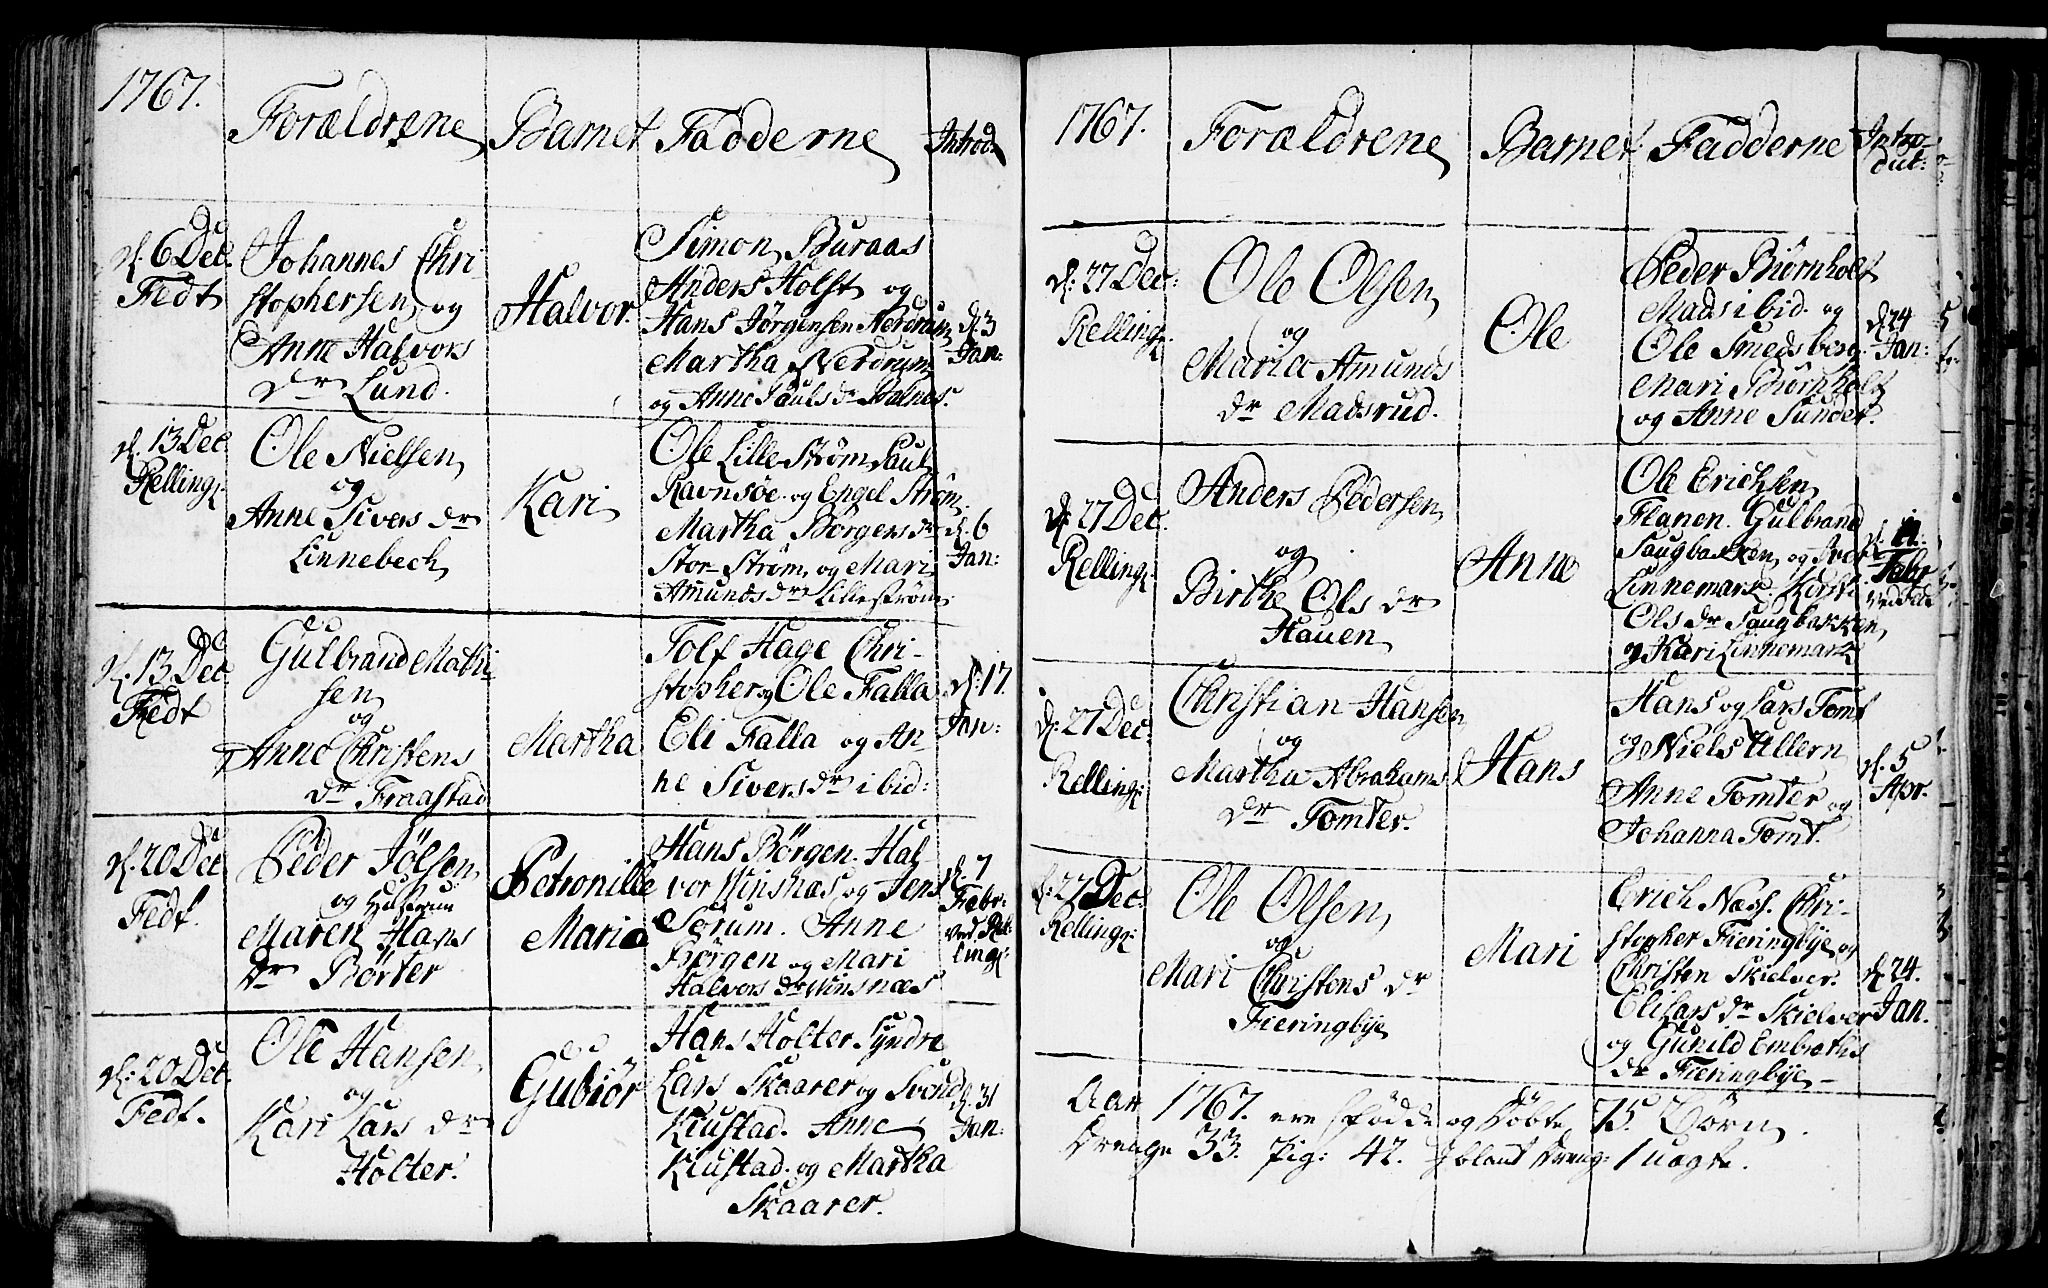 1767.
Forældrene
Barnet
Fadderne
Introd.
d. 6 Dec.
Fedt
Johannes Chri
stophersen og
Anne Halvors
dr Lund.
Halvor.
Simon Buraas
Anders Holst og
Hans Jörgensen Nerdrum
Martha Nerdrum
og Anne Pauls dr Balnes.
d. 3
Jan:
d. 13 Dec
Relling:
Ole Nielsen
og
Anne Sivers dr
Linnebeck
Kari
Ole Lille Ström Paul
Ravnsöe og Engel Ström.
Martha Börgers dr
Stor Ström og Mari
Amunds dr Lilleström
d. 6
Jan:
d. 13 Dec
Fedt
Gulbrand Mathi
sen
og
Anne Christens
dr Fraastad
Martha
Tolf Hage Chri-
stopher og Ole Falla
Eli Falla og An-
ne Sivers dr ibid:
d. 17.
Jan:
d. 20 Dec
Fedt.
Peder Jölsen
og Hustrue
Maren Hans
dr Börter
Petronille
Maria
Hans Börgen. Hal-
vor Winsnæs og Jens
Sörum. Anne
Börgen og Mari
Halvors dr Winsnæs
d. 7
Febr:
ved Rel-
ling:
d. 20 Dec.
Fedt.
Ole Hansen
og
Kari Lars dr
Holter.
Gubiör
Hans Holter Syndre
Lars Skaarer og Svend
Kiustad. Anne
Kiustad. og Martha
Skaarer.
d. 31
Jan:
1767.
Forældrene
Barnet
Fadderne
Intro-
duc:
d: 27 Dec:
Relling:
Ole Olsen
og
Maria Amunds
dr Madsrud.
Ole
Peder Biörnholt
Mads ibid. og
Ole Smedsberg
Mari Biörnholt
og Anne Sunder.
d. 24
Jan:
d. 27 Dec.
Relling:
Anders Pedersen
og
Birthe Ols dr
Hauen
Anne
Ole Erichsen
Flanen. Gulbrand
Saugbakken og Iver
Linnemark. Kirsti
Ols dr Saugbakken
og Kari Linnemark
Febr
ved Fedt
d. 27 Dec.
Relling:
Christian Hansen
og
Martha Abrahams
dr Tomter.
Hans
Hans og Lars Tomt
og Niels Ullern
Anne Tomter og
Johanna Tomt.
d. 5
Apr.
d: 27 Dec.
Relling:
Ole Olsen
og
Mari Christens dr
Fieringbye
Mari
Erich Næss. Chri-
stopher Fieringbye og
Christen Skielver.
Eli Lars dr Skielver
og Gunild Embreths
dr Fieringbye
d. 24.
Jan.
Aar 1767. ere födde og döbte 75. Börn.
Drenge 33. Pig: 42. Iblant Dreng: 1 uægte.